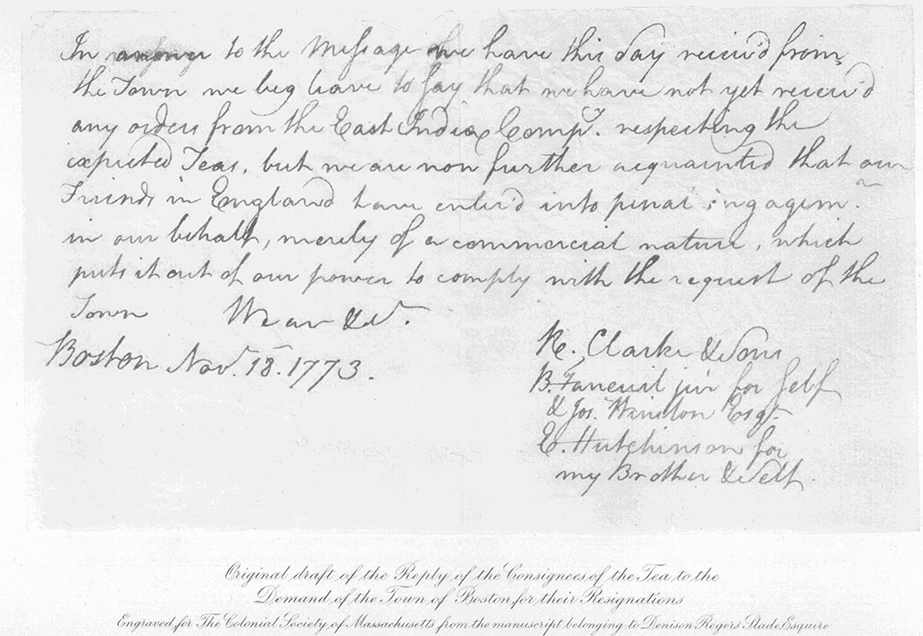 In answer to the Message we have this day receiv'd from
the Town we beg leave to say that we have not yet receiv'd
any orders from the East India Compy. respecting the
expected Teas, but we are now further acquainted that our
Friends in England have enter'd into penal ingagemts.
in our behalf, merely of a commercial nature, which
puts it out of our power to comply with the request of the
Town We are &c.
Boston Nov. 18. 1773.
R. Clarke & Sons
B. Faneuil jur for self
& Jos. Winslow Esqr.
E. Hutchinson for
my Brother & Self.
Original draft of the Reply of the Consignees of the Tea to the
Demand of the Town of Boston for their Resignations
Engraved for The Colonial Society of Massachusetts from the manuscript belonging to Denison Rogers Slade, Esquire